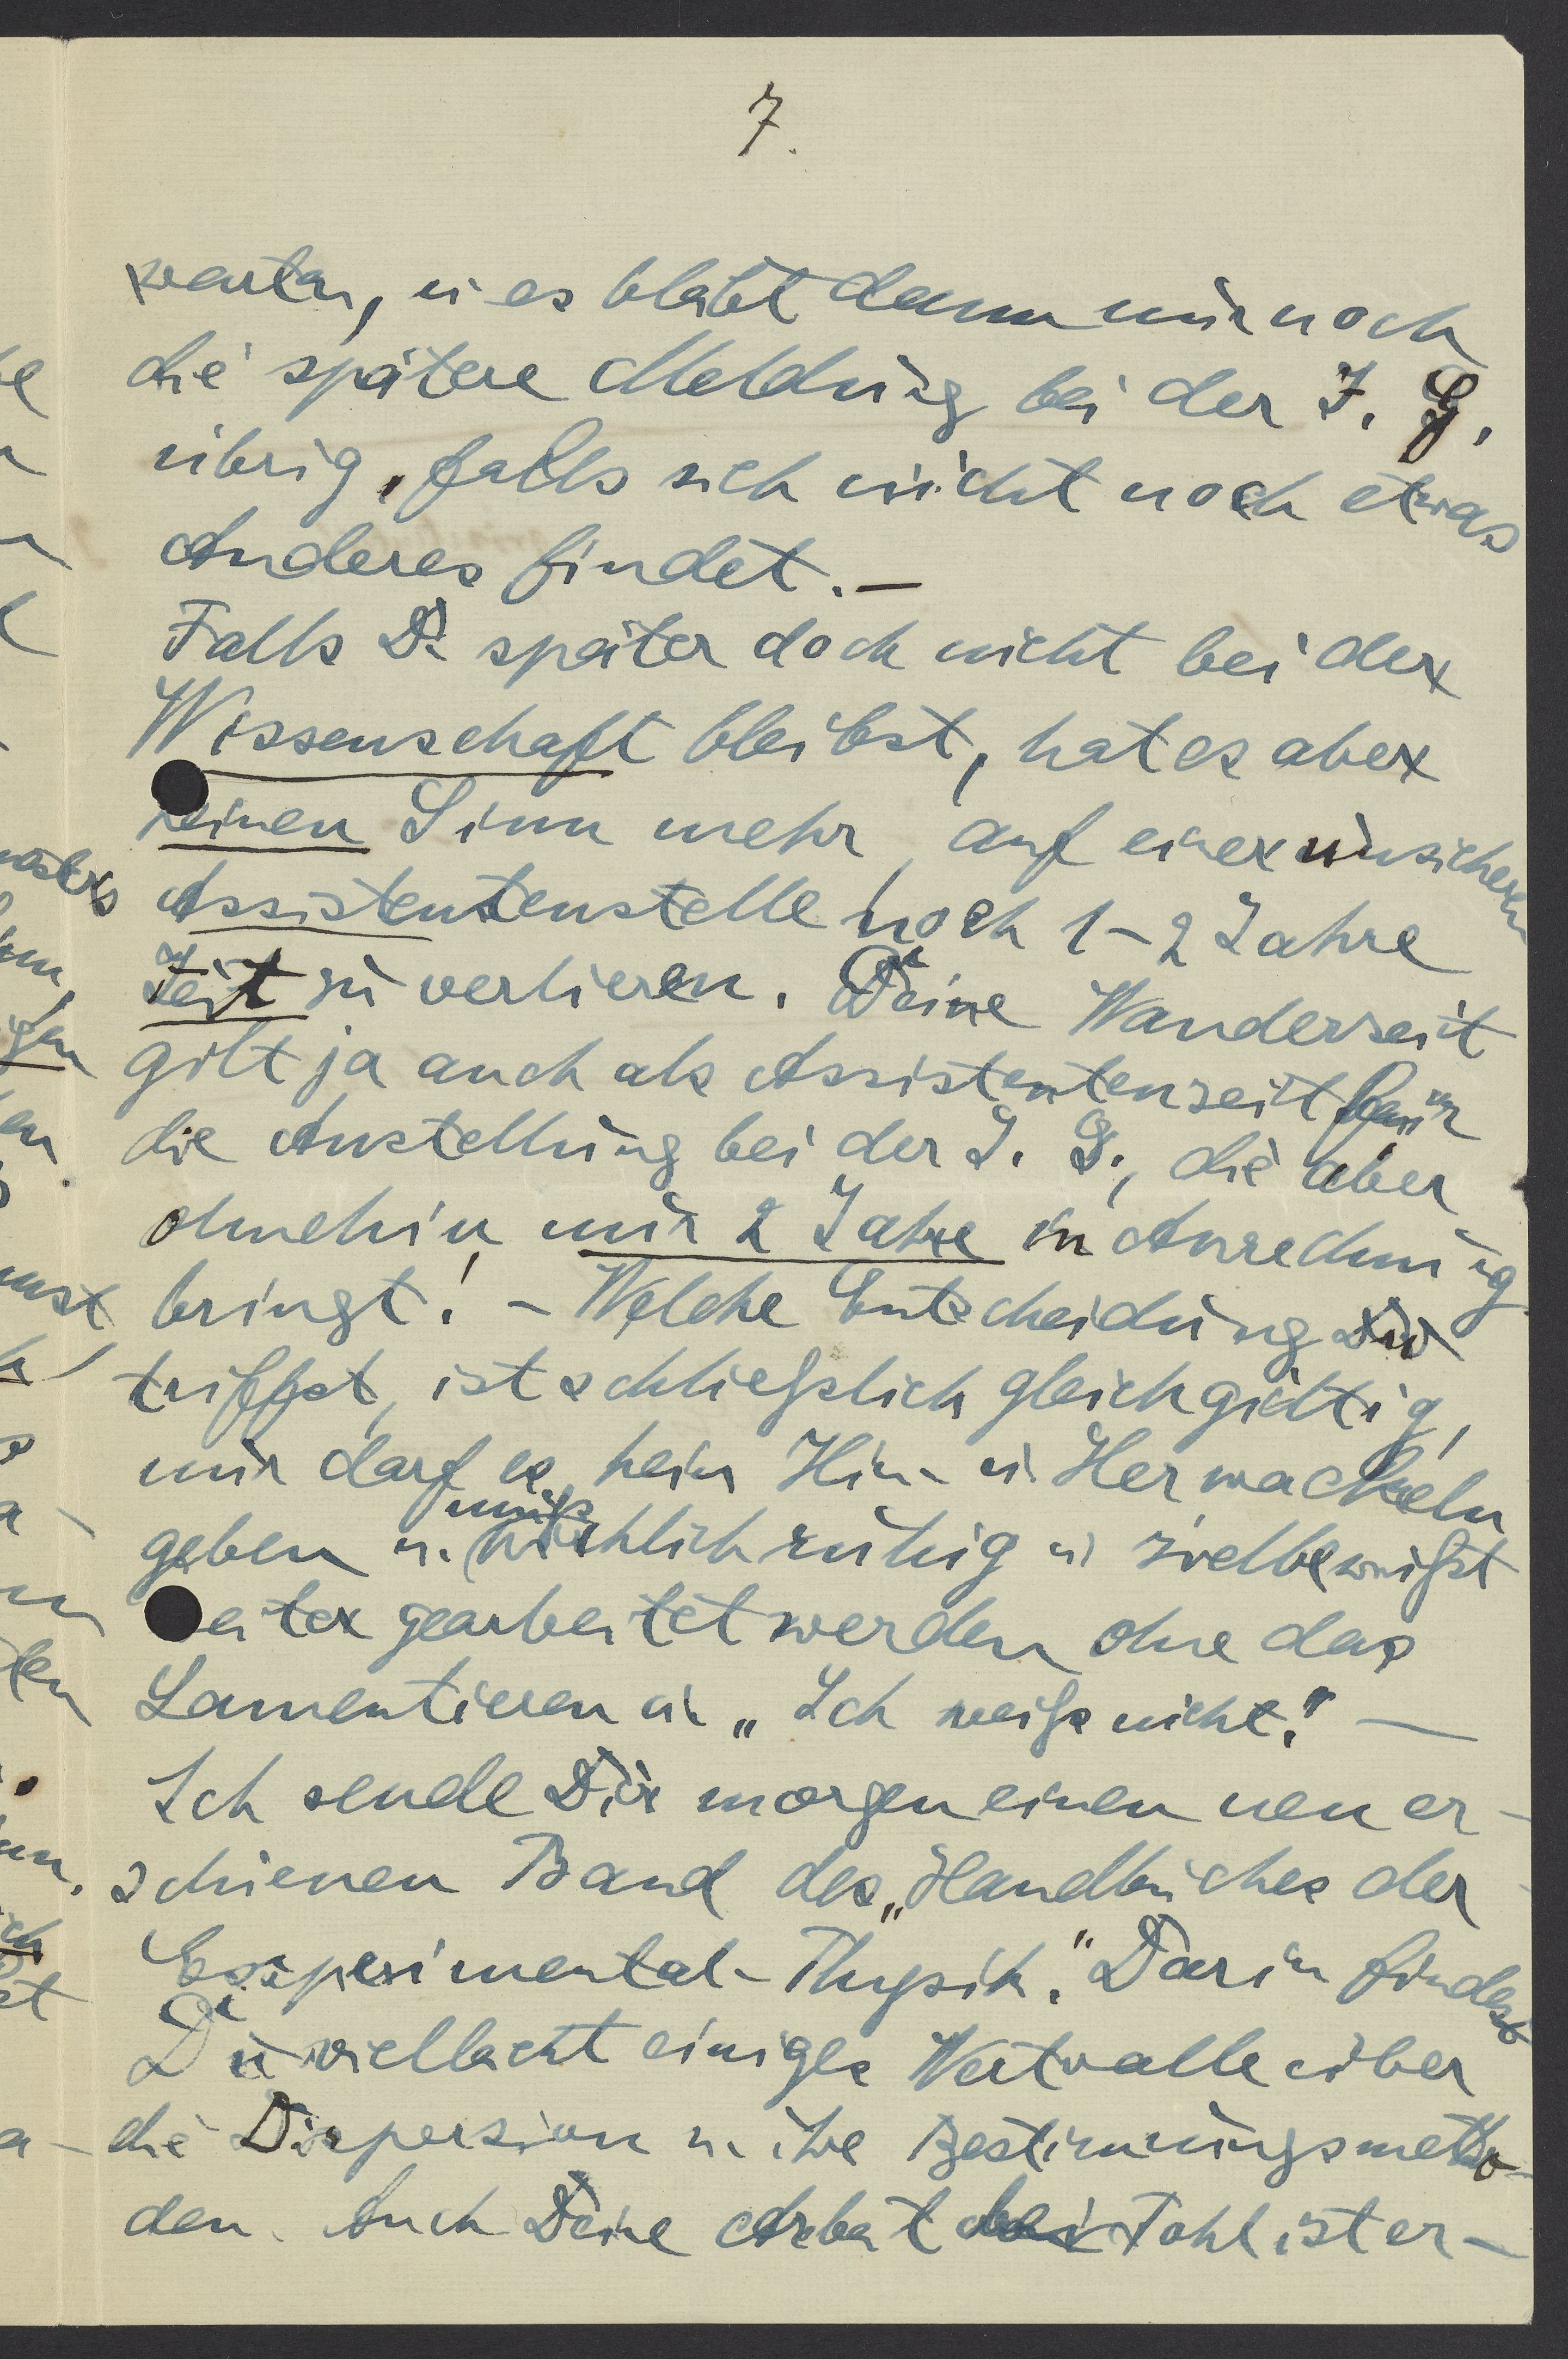 7.
warten, u. es bleibt dann nur noch
die spätere Meldung bei der I. G.
übrig, falls sich nicht noch etwas
Anderes findet. –
Falls Du später doch nicht bei der
Wissenschaft bleibst, hat es aber
keinen Sinn mehr, auf einer unsicheren
Assistentenstelle noch 1–2 Jahre
Zeit zu verlieren. Deine Wanderzeit
gilt ja auch als Assistentenzeit für
die Anstellung bei der I. G., die aber
ohnehin nur 2 Jahre in Anrechnung
bringt! – Welche Entscheidung Du
triffst, ist schließlich gleichgültig,
nur darf es kein Hin- u. Herwackeln
geben u. muß wirklich ruhig u. zielbewußt
weiter gearbeitet werden ohne das
Lamentieren u. „Ich weiß nicht." —
Ich sende Dir morgen einen neu er-
schienen Band des „Handbuches der
Experimental-Physik." Darin findest
Du vielleicht einiges Wertvolle über
die Dispersion u. ihre Bestimmungsmetho-
den. Auch Deine Arbeit bei Pohl ist er-